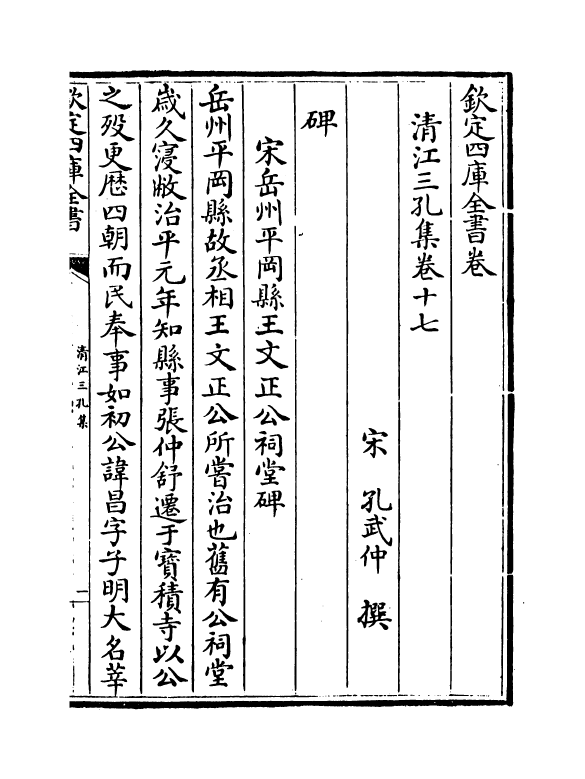 欽定四庫全書卷
清江三孔集卷十七
宋 孔武仲 撰
碑
宋岳州平岡縣王文正公祠堂碑
岳州平岡縣故丞相王文正公所嘗治也舊有公祠堂
歲久寖敝治平元年知縣事張仲舒遷于寶積寺以公
之歿更歷四朝而民奉事如初公諱昌字子明大名莘
欽定四庫全書
清江三孔集